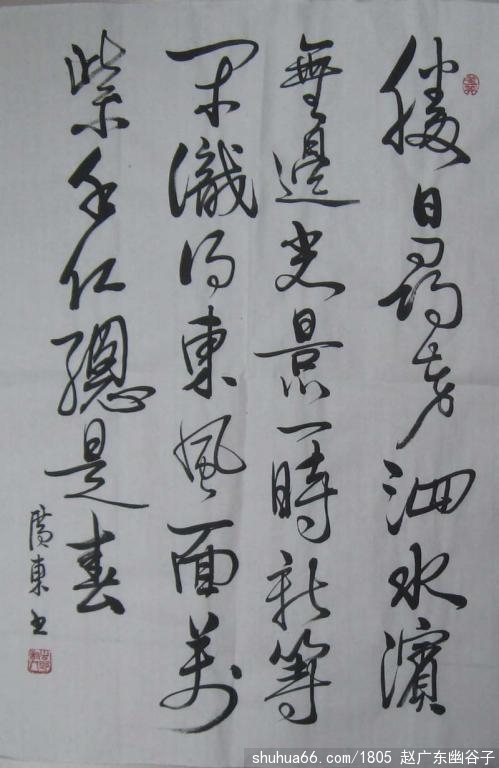 勝日尋芳泗水濱
無邊光景一時新等
閑識得東風面萬
紫千紅總是春
廣東书
shuhua66.com/1805 赵广东幽谷子